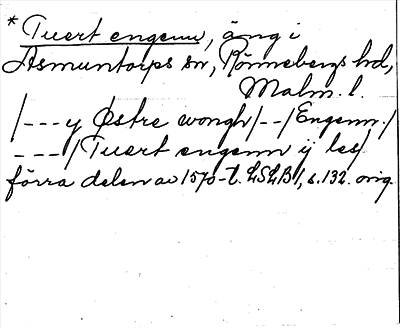 * Tuert engenn, äng i
Asmuntorps sn, Rönnebergs hd,
Malm. l.
/---y Østre wongh/--/Engenn./
---/Tuert engenn ij les/
förra delen av 1570-t. LSLB 1, s. 132. orig.